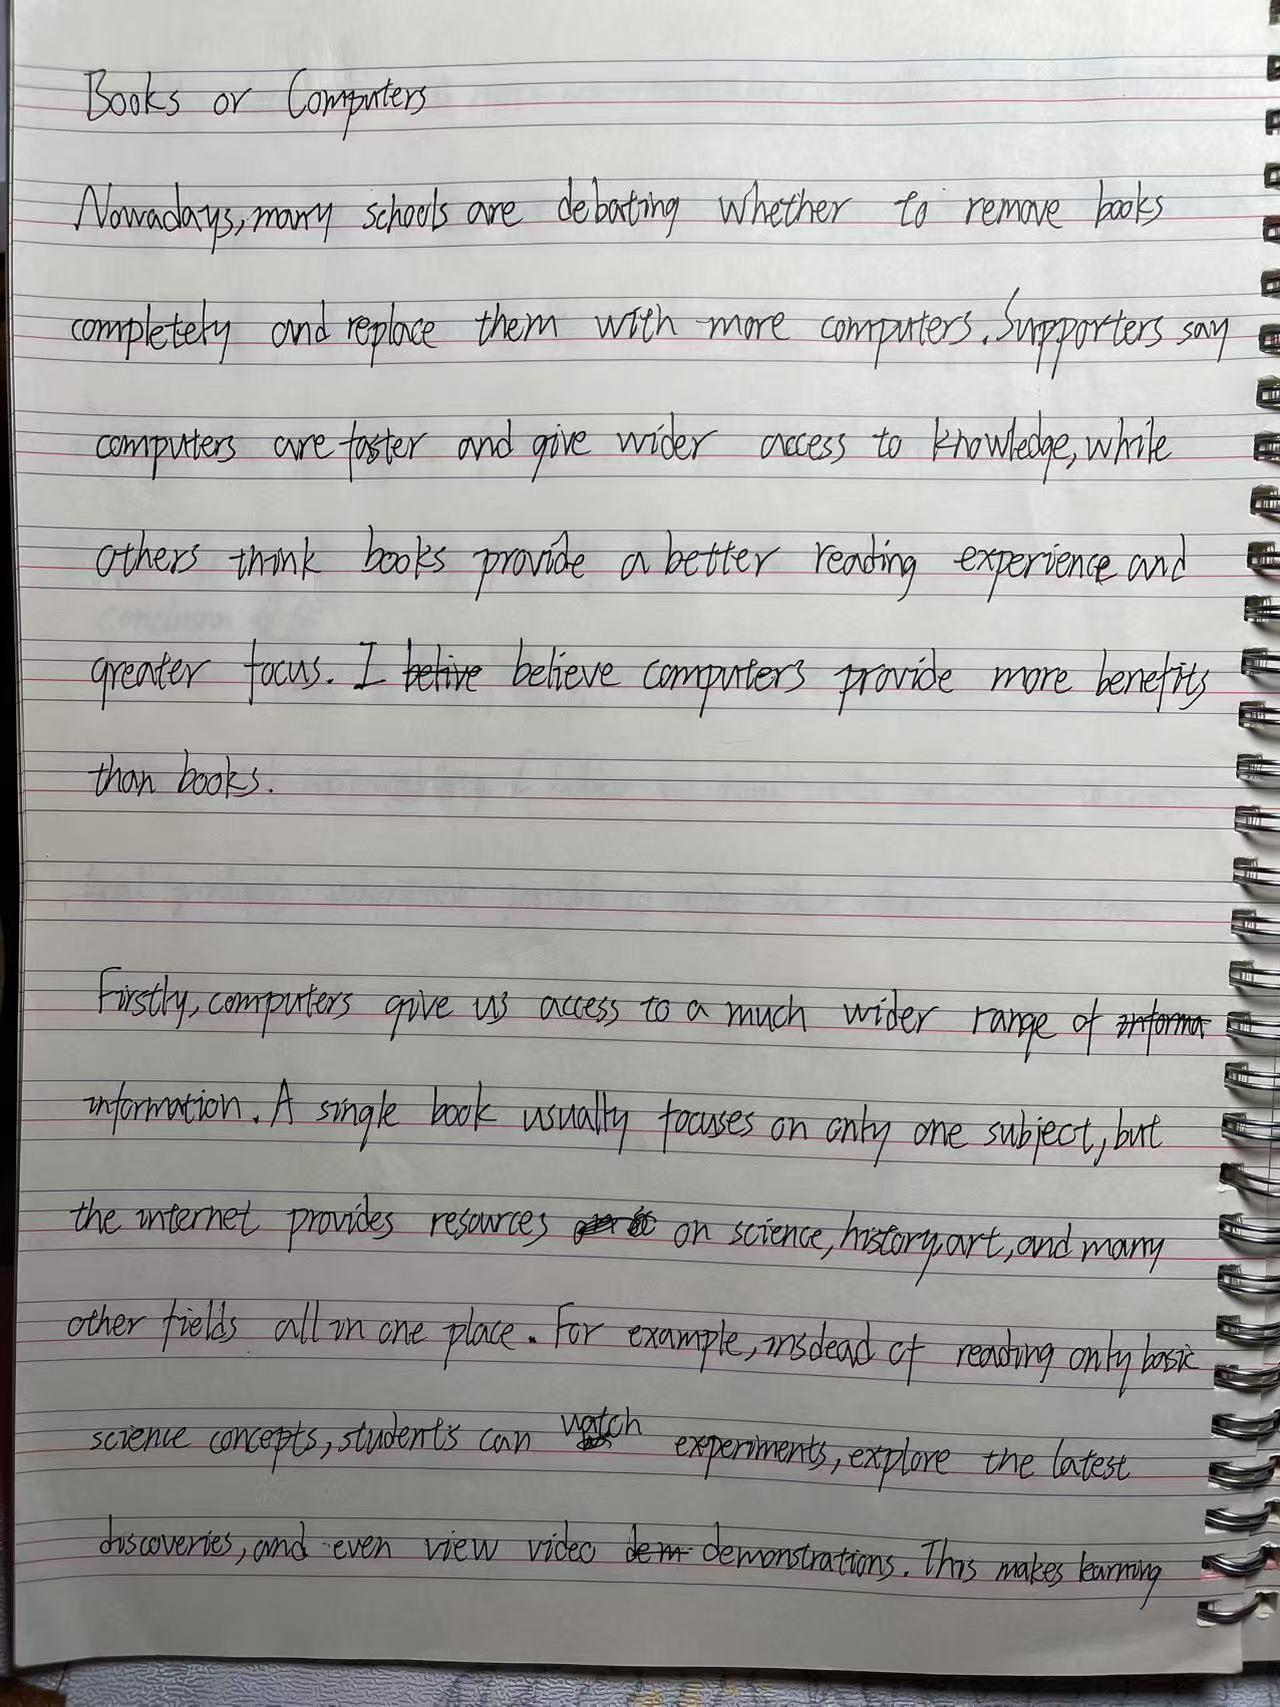 Books or Computers
Nowadays, many schools are debating whether to remove books
completely and replace them with more computers. Supporters say
computers are faster and give wider access to knowledge, while
others think books provide a better reading experience and
greater focus. I belive believe computers provide more benefits
than books.
Firstly, computers give us access to a much wider range of informa
information. A single book usually focuses on only one subject, but
the internet provides resources on science, history, art, and many
other fields all in one place. For example, insdead of reading only basic
science concepts, students can watch experiments, explore the latest
discoveries, and even view video dem demonstrations. This makes learning